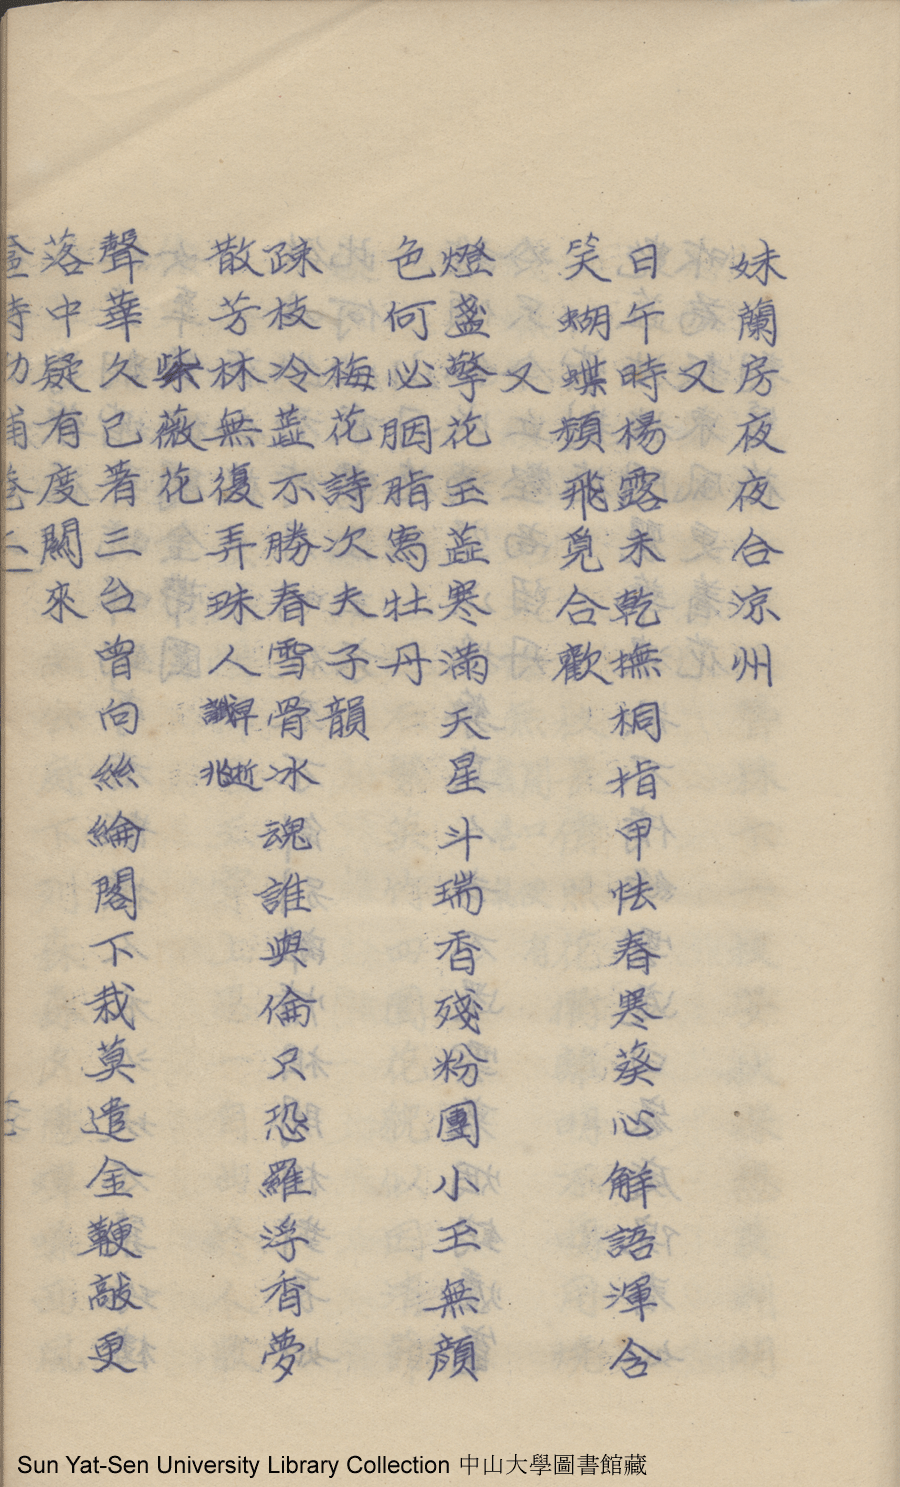 妹蘭房夜夜合涼州
又
日午時楊露未乾撫桐指甲怯春寒葵心解語渾含
笑蝴蝶頻飛覓合歡
又
燈盞擎花玉蕋寒滿天星斗瑞香殘粉團小玉無顏
色何必胭脂寫牡丹
梅花詩次夫子韻
疎枝冷蕋不勝春雪骨冰魂誰與倫只恐羅浮香夢
散芳林無復弄珠人早逝讖兆
紫薇花
聲華久已著三台曾向絲綸閣下栽莫遣金鞭敲更
落中疑有度關來
Sun Yat-Sen University Library Collection 中山大學圖書館藏